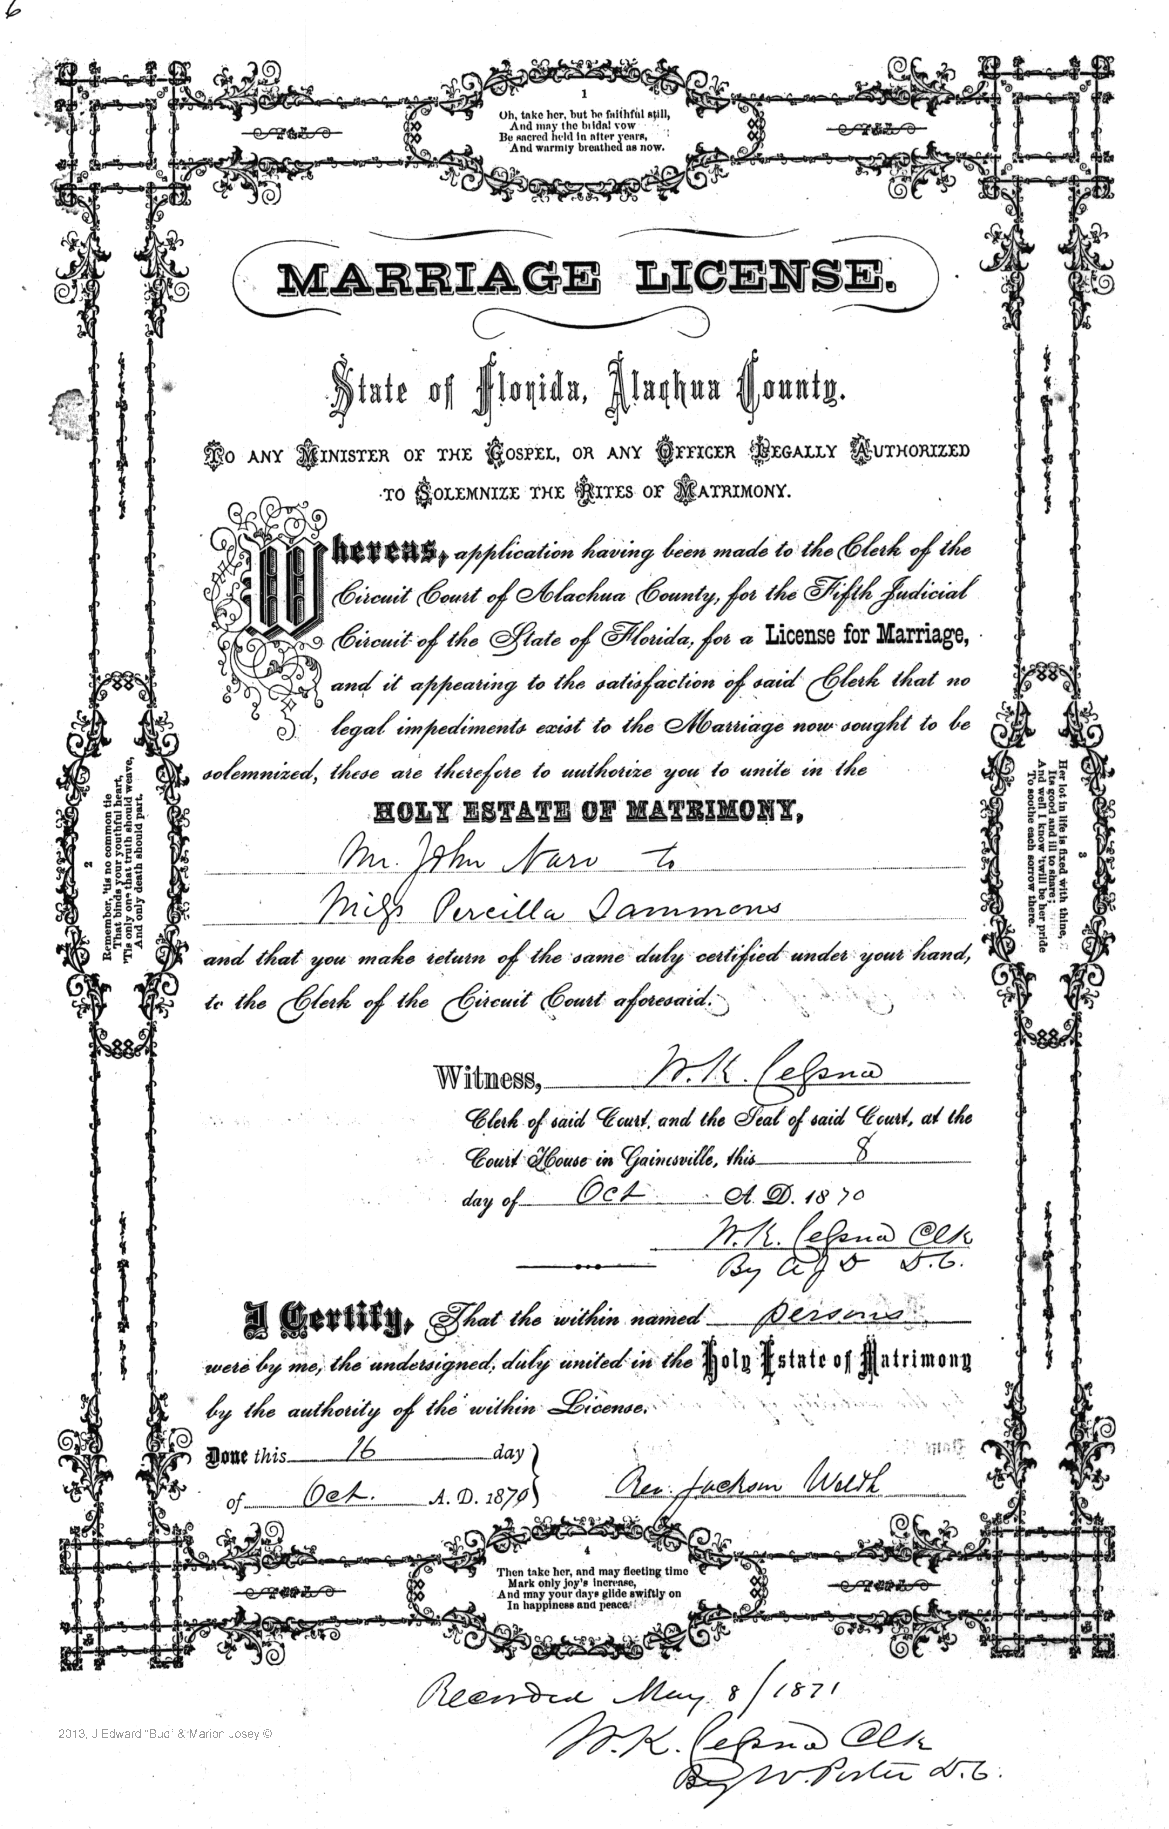 6
1
Oh, take her, but be faithful still,
And may the bridal vow
Be sacred held in after years,
And warmly breathed as now.
MARRIAGE LICENSE.
State of Florida, Alachua County.
TO ANY MINISTER OF THE GOSPEL, OR ANY OFFICER LEGALLY AUTHORIZED
TO SOLEMNIZE THE RITES OF MATRIMONY.
Whereas, application having been made to the Clerk of the
Circuit Court of Alachua County, for the Fifth Judicial
Circuit of the State of Florida, for a License for Marriage,
and it appearing to the satisfaction of said Clerk that no
legal impediments exist to the Marriage now sought to be
solemnized, these are therefore to authorize you to unite in the
HOLY ESTATE OF MATRIMONY,
Mr. John Naro to
Miss Percilla Sammons
and that you make return of the same duly certified under your hand,
to the Clerk of the Circuit Court aforesaid.
2
Remember, 'tis no common tie
That binds your youthful heart,
'Tis only one that truth should weave,
And only death should part.
3
Her lot in life is fixed with thine,
Its good and ill to share;
And well I know 'twill be her pride
To soothe each sorrow there.
Witness, W. K. Cessna
Clerk of said Court, and the Seal of said Court, at the
Court House in Gainesville, this 8
day of Oct A. D. 1870
W. K. Cessna Clk
By A J D D. C.
I Certify, That the within named persons
were by me, the undersigned, duly united in the Holy Estate of Matrimony
by the authority of the within License.
Done this 16 day
of Oct. A. D. 1870
Rev. Jackson
4
Then take her, and may fleeting time
Mark only joy's increase,
And may your days glide swiftly on
In happiness and peace.
Recorded May 8/1871
W. K. Cessna Clk
By W. Porter D. C.
2013, J Edward "Bud" & Marion Josey ©